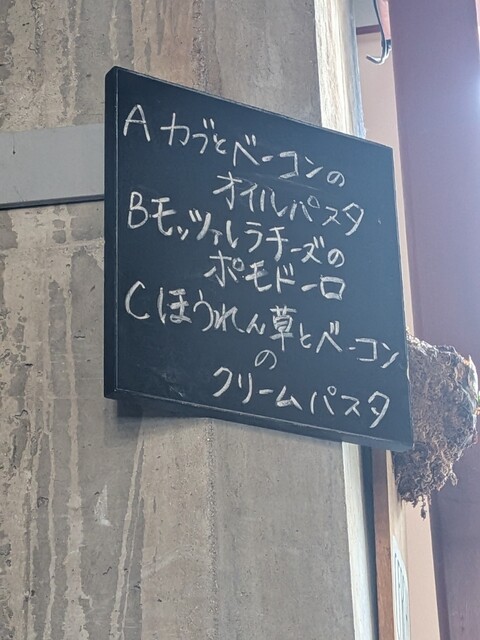 A カブとベーコンの
オイルパスタ
Bモッツァレラチーズの
ポモドーロ
Cほうれん草とベーコン
の
クリームパスタ